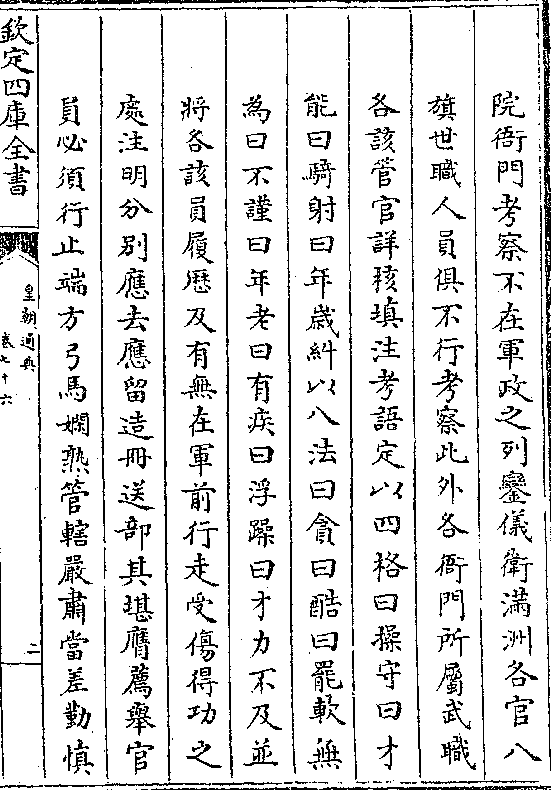 院衙門考察不在軍政之列鑾儀衛滿洲各官八
旗世職人員俱不行考察此外各衙門所屬武職
各該管官詳核填注考語定以四格曰操守曰才
能曰騎射曰年歲糾以八法曰貪曰酷曰罷軟無
為曰不謹曰年老曰有疾曰浮躁曰才力不及並
將各該員履歴及有無在軍前行走受傷得功之
處注明分別應去應留造冊送部其堪膺薦舉官
員必須行止端方弓馬嫻熟管轄嚴肅當差勤慎
欽定四庫全書
皇朝通典
卷七十六
二